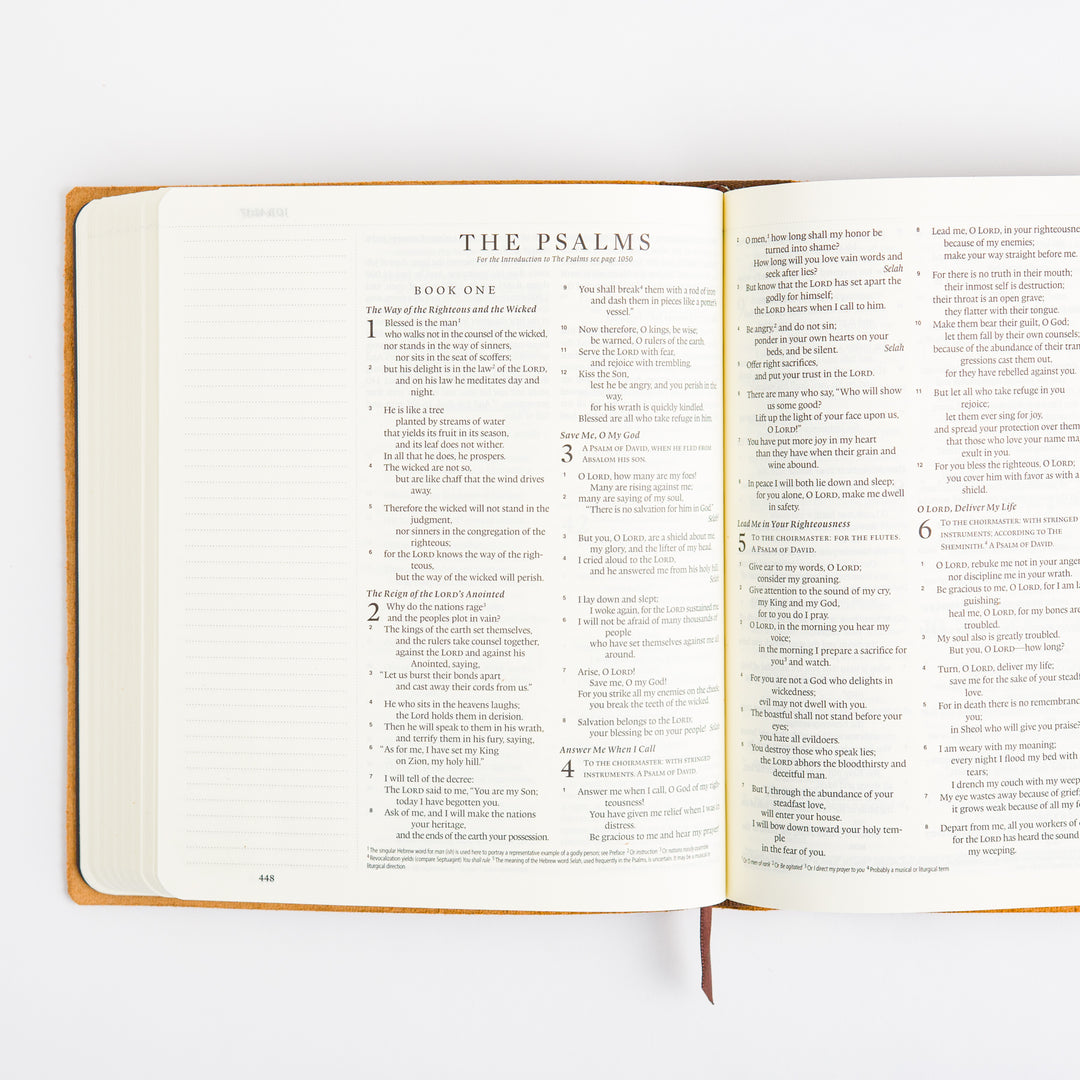 THE PSALMS
For the Introduction to The Psalms see page 1050
BOOK ONE
The Way of the Righteous and the Wicked
1 Blessed is the man¹
who walks not in the counsel of the wicked,
nor stands in the way of sinners,
nor sits in the seat of scoffers;
2 but his delight is in the law² of the LORD,
and on his law he meditates day and
night.
3 He is like a tree
planted by streams of water
that yields its fruit in its season,
and its leaf does not wither.
In all that he does, he prospers.
4 The wicked are not so,
but are like chaff that the wind drives
away.
5 Therefore the wicked will not stand in the
judgment,
nor sinners in the congregation of the
righteous;
6 for the LORD knows the way of the righ-
teous,
but the way of the wicked will perish.
The Reign of the LORD's Anointed
2 Why do the nations rage³
and the peoples plot in vain?
2 The kings of the earth set themselves,
and the rulers take counsel together,
against the LORD and against his
Anointed, saying,
3 “Let us burst their bonds apart
and cast away their cords from us.”
4 He who sits in the heavens laughs;
the Lord holds them in derision.
5 Then he will speak to them in his wrath,
and terrify them in his fury, saying,
6 “As for me, I have set my King
on Zion, my holy hill.”
7 I will tell of the decree:
The LORD said to me, “You are my Son;
today I have begotten you.
8 Ask of me, and I will make the nations
your heritage,
and the ends of the earth your possession.
9 You shall break⁴ them with a rod of iron
and dash them in pieces like a potter's
vessel.”
10 Now therefore, O kings, be wise;
be warned, O rulers of the earth.
11 Serve the LORD with fear,
and rejoice with trembling.
12 Kiss the Son,
lest he be angry, and you perish in the
way,
for his wrath is quickly kindled.
Blessed are all who take refuge in him.
Save Me, O My God
3 A PSALM OF DAVID, WHEN HE FLED FROM
ABSALOM HIS SON.
1 O LORD, how many are my foes!
Many are rising against me;
2 many are saying of my soul,
“There is no salvation for him in God”
Selah
3 But you, O LORD, are a shield about me,
my glory, and the lifter of my head.
4 I cried aloud to the LORD,
and he answered me from his holy hill.
Selah
5 I lay down and slept;
I woke again, for the LORD sustained me.
6 I will not be afraid of many thousands of
people
who have set themselves against me all
around.
7 Arise, O LORD!
Save me, O my God!
For you strike all my enemies on the cheek;
you break the teeth of the wicked.
8 Salvation belongs to the LORD;
your blessing be on your people! Selah
Answer Me When I Call
4 TO THE CHOIRMASTER: WITH STRINGED
INSTRUMENTS. A PSALM OF DAVID.
1 Answer me when I call, O God of my righ-
teousness!
You have given me relief when I was in
distress.
Be gracious to me and hear my prayer!
¹ The singular Hebrew word for man (ish) is used here to portray a representative example of a godly person; see Preface ² Or instruction ³ Or nations noisily assemble
⁴ Revocalization yields (compare Septuagint) You shall rule ⁵ The meaning of the Hebrew word Selah, used frequently in the Psalms, is uncertain. It may be a musical or
liturgical direction
448
2 O men,¹ how long shall my honor be
turned into shame?
How long will you love vain words and
seek after lies? Selah
3 But know that the LORD has set apart the
godly for himself;
the LORD hears when I call to him.
4 Be angry,² and do not sin;
ponder in your own hearts on your
beds, and be silent. Selah
5 Offer right sacrifices,
and put your trust in the LORD.
6 There are many who say, “Who will show
us some good?
Lift up the light of your face upon us,
O LORD!”
7 You have put more joy in my heart
than they have when their grain and
wine abound.
8 In peace I will both lie down and sleep;
for you alone, O LORD, make me dwell
in safety.
Lead Me in Your Righteousness
5 TO THE CHOIRMASTER: FOR THE FLUTES.
A PSALM OF DAVID.
1 Give ear to my words, O LORD;
consider my groaning.
2 Give attention to the sound of my cry,
my King and my God,
for to you do I pray.
3 O LORD, in the morning you hear my
voice;
in the morning I prepare a sacrifice for
you³ and watch.
4 For you are not a God who delights in
wickedness;
evil may not dwell with you.
5 The boastful shall not stand before your
eyes;
you hate all evildoers.
6 You destroy those who speak lies;
the LORD abhors the bloodthirsty and
deceitful man.
7 But I, through the abundance of your
steadfast love,
will enter your house.
I will bow down toward your holy tem-
ple
in the fear of you.
8 Lead me, O LORD, in your righteousne
because of my enemies;
make your way straight before me.
9 For there is no truth in their mouth;
their inmost self is destruction;
their throat is an open grave;
they flatter with their tongue.
10 Make them bear their guilt, O God;
let them fall by their own counsels;
because of the abundance of their tran
gressions cast them out,
for they have rebelled against you.
11 But let all who take refuge in you
rejoice;
let them ever sing for joy,
and spread your protection over them
that those who love your name ma
exult in you.
12 For you bless the righteous, O LORD;
you cover him with favor as with a
shield.
O LORD, Deliver My Life
6 TO THE CHOIRMASTER: WITH STRINGED
INSTRUMENTS; ACCORDING TO THE
SHEMINITH.⁴ A PSALM OF DAVID.
1 O LORD, rebuke me not in your anger
nor discipline me in your wrath.
2 Be gracious to me, O LORD, for I am la
guishing;
heal me, O LORD, for my bones are
troubled.
3 My soul also is greatly troubled.
But you, O LORD—how long?
4 Turn, O LORD, deliver my life;
save me for the sake of your steadf
love.
5 For in death there is no remembranc
you;
in Sheol who will give you praise?
6 I am weary with my moaning;
every night I flood my bed with
tears;
I drench my couch with my weep
7 My eye wastes away because of grief;
it grows weak because of all my fo
8 Depart from me, all you workers of
for the LORD has heard the sound
my weeping.
¹ Or O men of rank ² Or Be agitated ³ Or I direct my prayer to you ⁴ Probably a musical or liturgical term